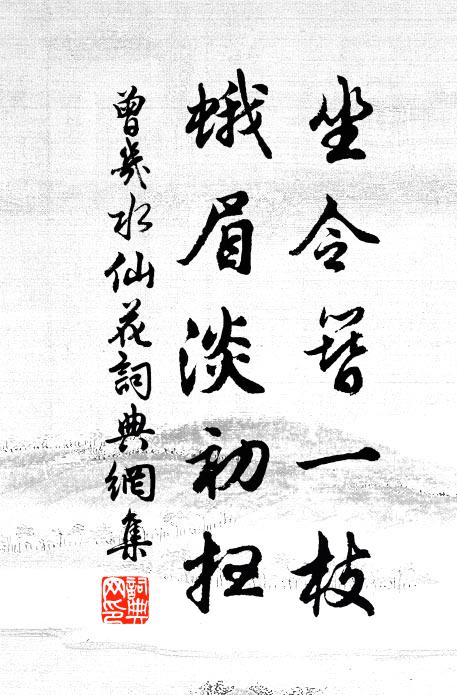 坐令簪一枝
蛾眉淡初扫
曾几水仙花詞典網集